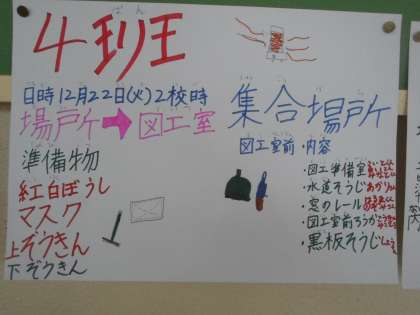 4班
はん
日時12月22日(火)2校時
場所→図工室
準備物
紅白ぼうし
マスク
上ぞうきん
下ぞうきん
集合場所
図工室前・内容
・図工準備室
・水道そうじ
・窓のレール
・図工室前ろうか
・黒板そうじ